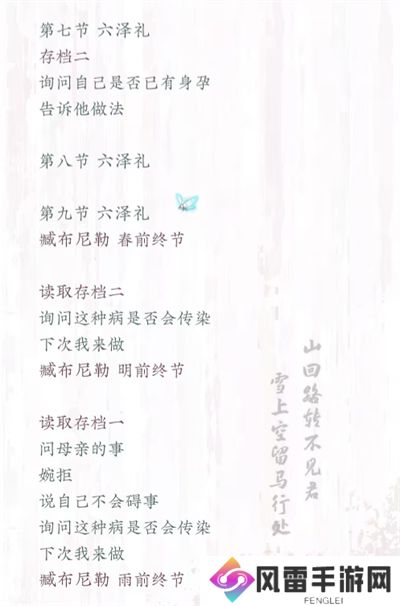 第七节 六泽礼
存档二
询问自己是否已有身孕
告诉他做法
第八节 六泽礼
第九节 六泽礼
臧布尼勒 春前终节
读取存档二
询问这种病是否会传染
下次我来做
臧布尼勒 明前终节
读取存档一
问母亲的事
婉拒
说自己不会碍事
询问这种病是否会传染
下次我来做
臧布尼勒 雨前终节
山回路转不见君
雪上空留马行处
风雷手游网
FENGLEI